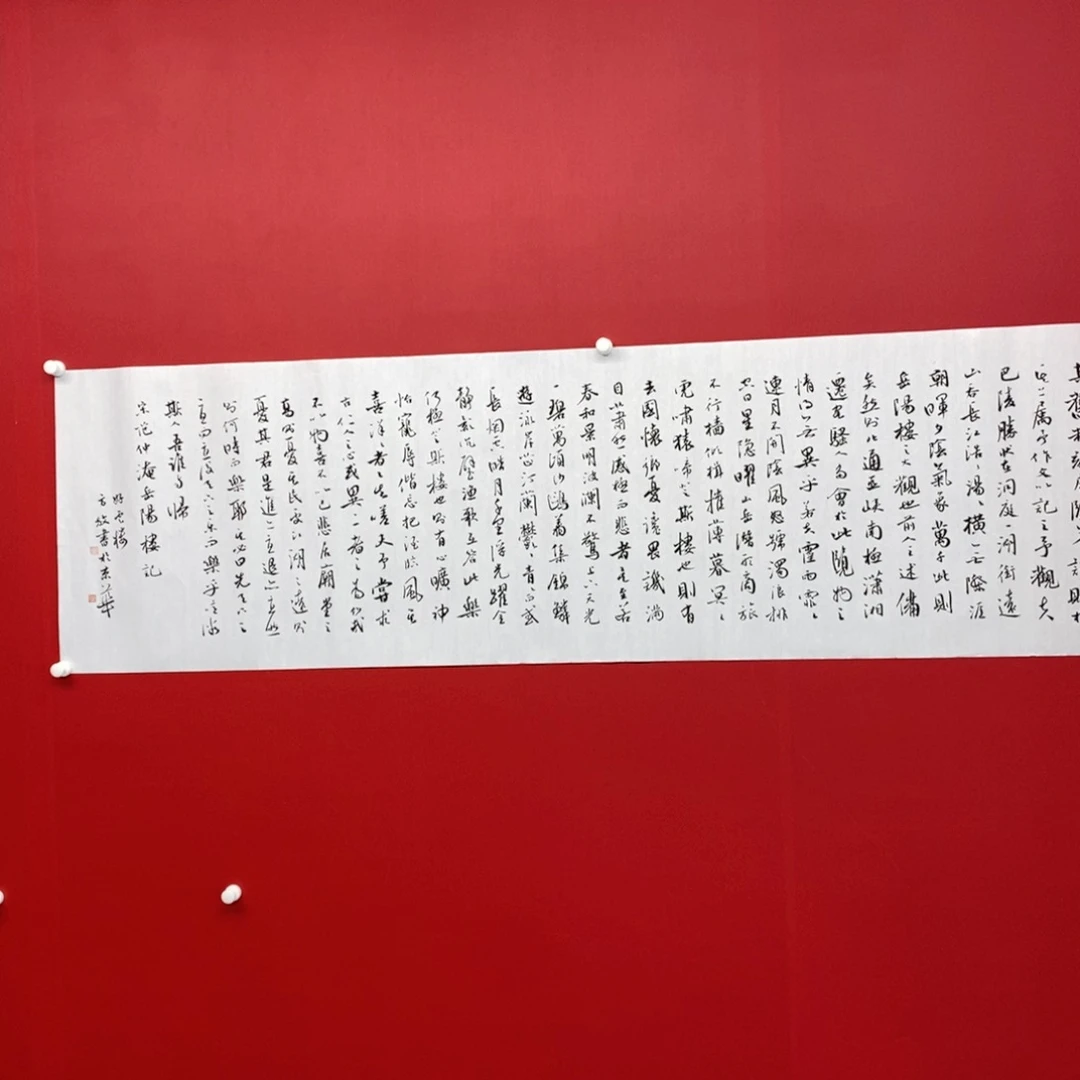 其上屬予作文以記之予觀夫
巴陵勝狀在洞庭一湖銜遠
山吞長江浩〻湯〻橫無際涯
朝暉夕陰氣象萬千此則
岳陽樓之大觀也前人之述備
矣然則北通巫峽南極瀟湘
遷客騷人多會於此覽物之
情得無異乎若夫霪雨霏〻
連月不開陰風怒號濁浪排
空日星隱曜山岳潛形商旅
不行檣傾楫摧薄暮冥〻
虎嘯猿啼登斯樓也則有
去國懷鄉憂讒畏譏滿
目蕭然感極而悲者矣至若
春和景明波瀾不驚上下天光
一碧萬頃沙鷗翔集錦鱗
遊泳岸芷汀蘭鬱〻青〻而或
長烟一空皓月千里浮光躍金
靜影沉璧漁歌互答此樂
何極登斯樓也則有心曠神
怡寵辱偕忘把酒臨風其
喜洋〻者矣嗟夫予嘗求
古仁人之心或異二者之為何哉
不以物喜不以己悲居廟堂之
高則憂其民處江湖之遠則
憂其君是進亦憂退亦憂然
則何時而樂耶其必曰先天下之
憂而憂後天下之樂而樂乎噫微
斯人吾誰與歸
宋范仲淹岳陽樓記